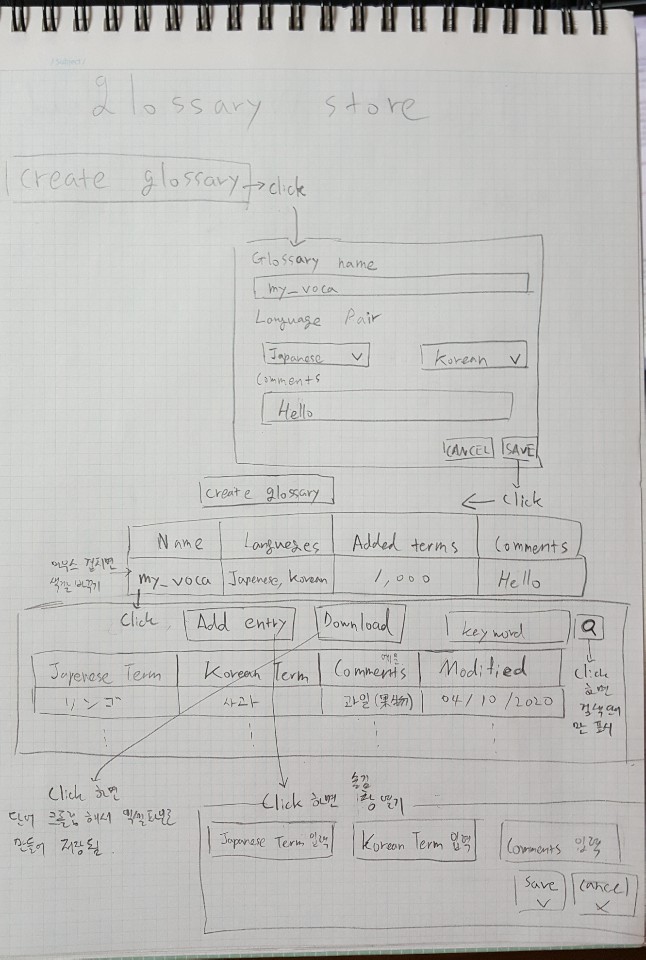 glossary store
create glossary → click
Glossary name
my_voca
Language Pair
Japanese ∨ Korean ∨
Comments
Hello
CANCEL SAVE
create glossary ← click
Name Languages Added terms Comments
마우스 겹치면
색깔 바꾸기
my_voca Japanese, Korean 1,000 Hello
click Add entry Download keyword Q
Japenese Term Korean Term Comments 메모 Modified
リンゴ 사과 과일(果物) 04/10/2020
click
하면
검색 단어
만 표시
Click 하면
단어 크롤링 해서 엑셀파일로
만들어 저장됨.
Click 하면 숨김
창 열기
Japanese Term 입력 Korean Term 입력 Comments 입력
save ∨ cancel ×